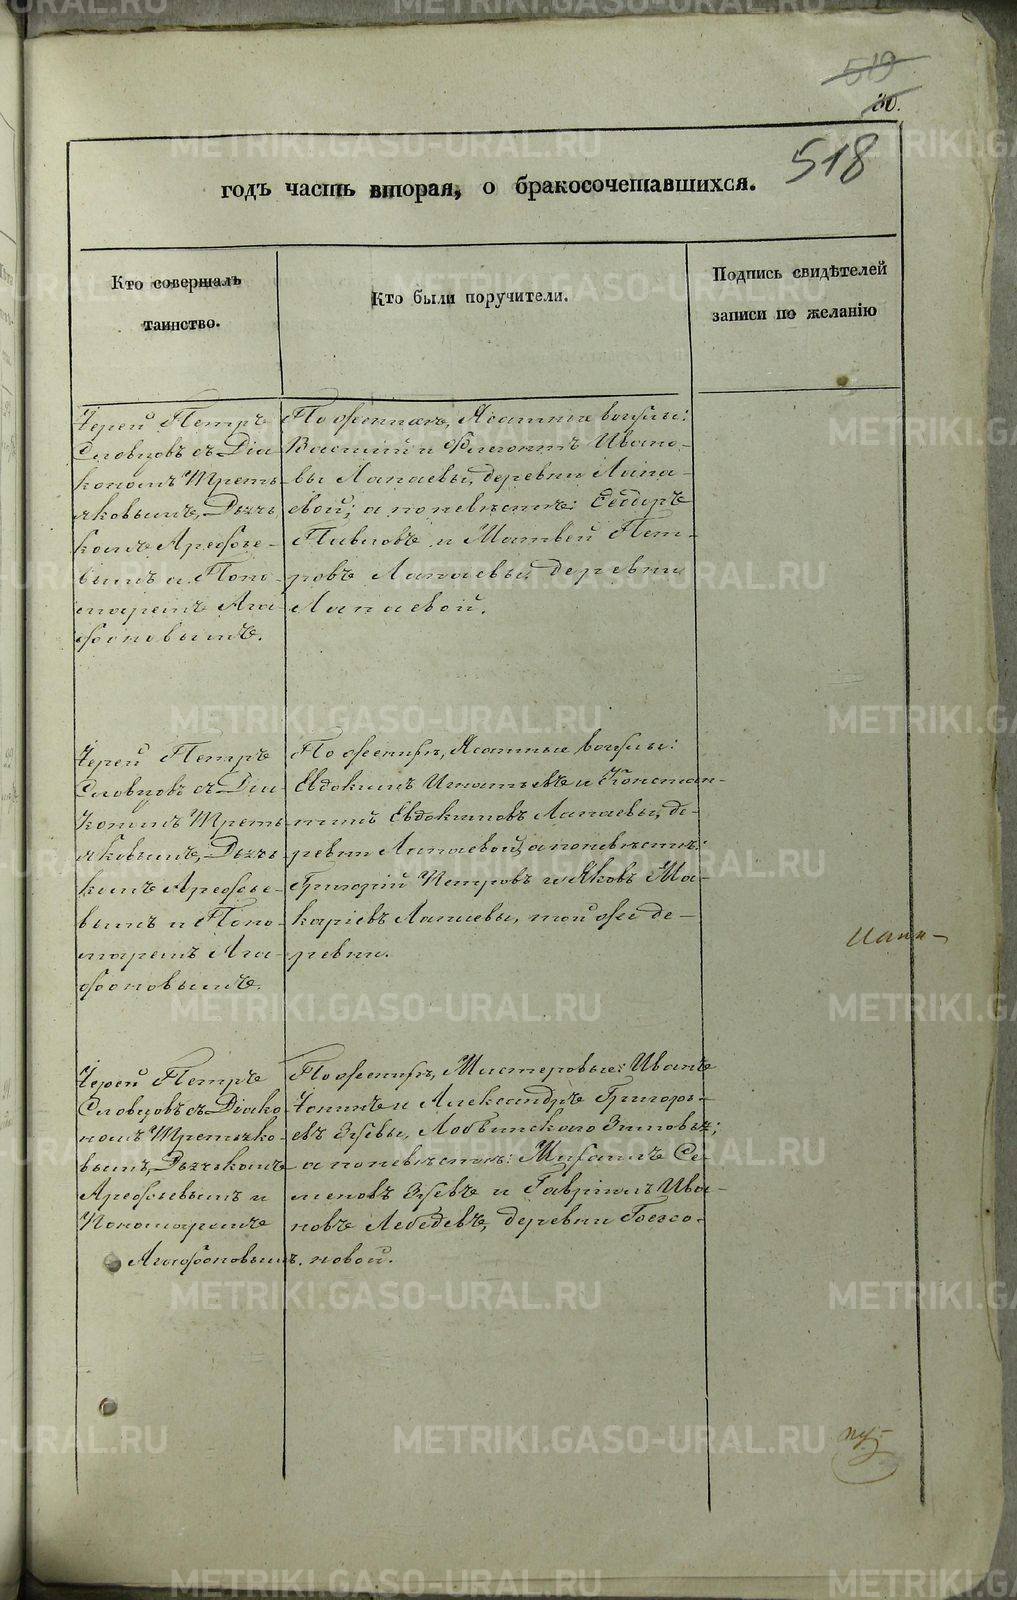 519
80.
518
годъ часть вторая, о бракосочетавшихся.
Кто совершалъ
таинство.
Кто были поручители.
Подпись свидѣтелей
записи по желанію
Іерей Петръ
Словцовъ съ Діа-
кономъ Треть-
яковымъ, Дьяч-
комъ Арефье-
вымъ и Поно-
маремъ Ага-
фоновымъ.
По женихѣ, Ясашные вогулы:
Василий и Филиппъ Ивано-
вы Лапаевы, деревни Лапа-
евой; а по невѣстѣ: Сидоръ
Павловъ и Матвей Пет-
ровъ Лапаевы, деревни
Лапаевой.
Іерей Петръ
Словцовъ съ Діа-
кономъ Треть-
яковымъ, Дьяч-
комъ Арефье-
вымъ и Поно-
маремъ Ага-
фоновымъ.
По женихѣ, Ясашные вогулы:
Евдокимъ Игнатьевъ и Констан-
тинъ Евдокимовъ Лапаевы, де-
ревни Лапаевой, а по невѣстѣ:
Григорій Петровъ и Яковъ Ма-
каріевъ Лапаевы, той же де-
ревни.
Іерей Петръ
Словцовъ съ Діако-
номъ Третьяко-
вымъ, Дьячкомъ
Арефьевымъ и
Пономаремъ
Агафоновымъ.
По женихѣ, Мастеровые: Иванъ
и Александръ Григорь-
евъ Зуевы, Лобвинскаго Зимовья;
а по невѣстѣ: Михаилъ Се-
меновъ Зуевъ и Гавріилъ Ива-
новъ Лебедевъ, деревни
новой.
METRIKI.GASO-URAL.RU